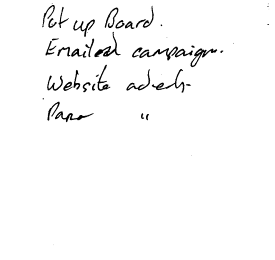 Put up Board.
Emailed campaign.
Website adverts
Paper "